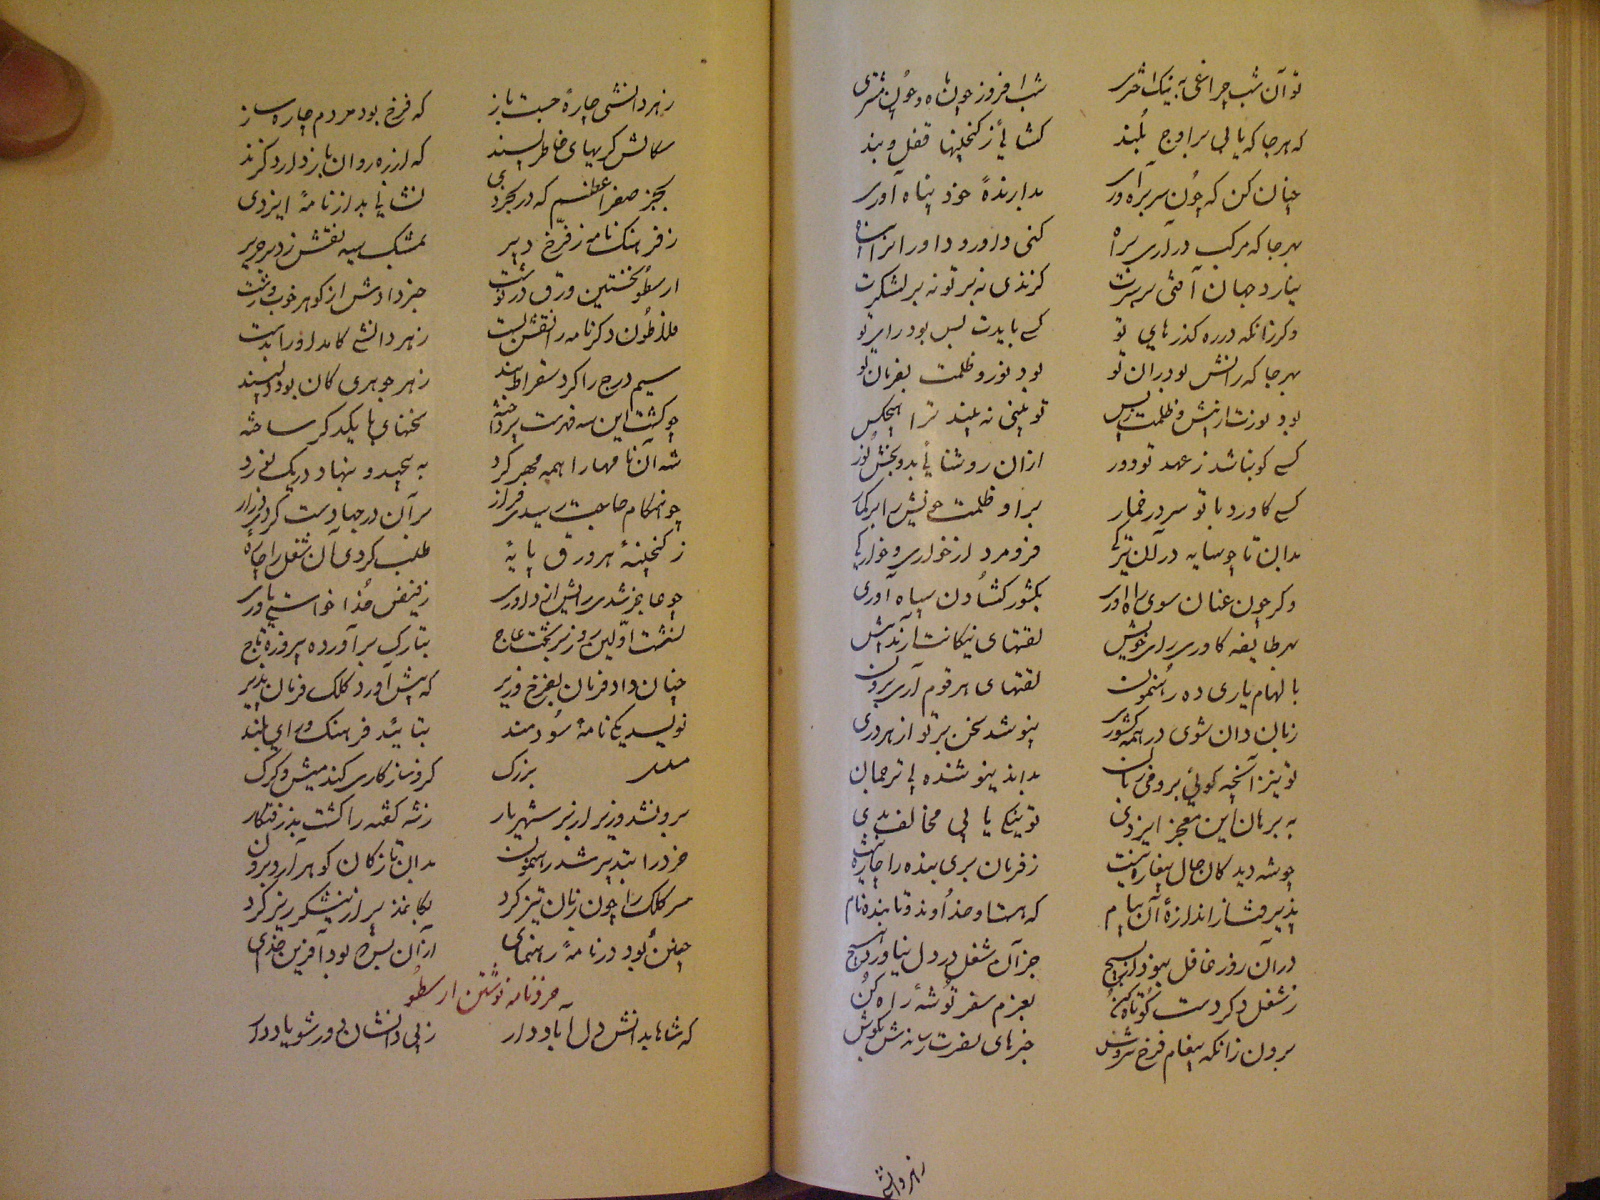 تو آن شب چراغی به نیک اختری شب افروز چون ماه و چون مشتری
که هر جا که یابی براوج بلند کشایی ز گنجینها قفل و بند
چنان کن که چون سر براه آوری بدارندهٔ خود پناه آوری
بهر جا که مرکب درآری براه کنی داور داوران را پناه
نیارد جهان آفتی بر سرت گزندی نه بر تو نه بر لشکرت
وگر زانکه در رهگذرهای تو کسی بایدت پس بود رای تو
بهر جا که رانش بود ران تو بود نور و ظلمت بفرمان تو
بود نورت از پیش و ظلمت ز پس تو بینی نه بیند ترا هیچکس
کسی کو نباشد ز عهد تو دور ازان روشنایی بدو بخش نور
کسی کاورد با تو سر در خمار برو ظلمت خویش را بر گمار
بدان تا چو سایه در آن تیرگی فرو میرد از خواری و خیرگی
دگر چون عنان سوی راه آوری بکشور گشادن سپاه آوری
بهر طایفه کاوری رای خویش لغتهای بیگانت آرند پیش
بالهام یاری ده رهنمون لغتهای هر قوم آری برون
زبان دان شوی در همه کشوری نپوشد سخن بر تو از هر دری
تو نیز آنچه گویی برومی زبان بداند نیوشنده بی ترجمان
به برهان این معجز ایزدی تو نیکی یابی مخالف بدی
چو شه دید کان حال پیغاره نیست ز فرمان بری بنده را چاره نیست
پذیرفت از اندازهٔ آن پیام که هست او خداوند و ما بنده نام
در آن روز غافل نبود از بسیچ جز آن شغل در دل نیاورد هیچ
ز شغل دگر دست کوتاه کن بعزم سفر توشهٔ راه کن
برون زانکه پیغام فرخ سروش خبرهای نصرت رساندش بگوش
ز هر دانشی
ز هر دانشی چارهٔ جست باز که فرخ بود مردم چاره ساز
سکالش گریهای خاطر پسند که از ره روان باز دارد گزند
بجز صفر اعظم که در بخردی نشانی بد از نامهٔ ایزدی
ز فرهنگ نامه ز فرخ دبیر بمشک سیه نقش زد بر حریر
ارسطو نخستین ورق در نوشت خبر دادش از گوهر خوب و زشت
فلاطون دگر نامه را نقش بست ز هر دانشی کامد او را بدست
سیم درج را کرد سقراط بند ز هر جوهری کان بود دلپسند
چو گشت این سه فهرست پرداخته سخنهای با یکدگر ساخته
شه آن نامها را همه مهر کرد به پیچید و بنهاد در یک نورد
چو هنگام حاجت رسیدی فراز بر آن درجها دست کردی دراز
ز گنجینهٔ هر ورق پایهٔ طلب کردی آن شغل را چارهٔ
چو عاجز شدی رایش از داوری ز فیض خدا خواستی یاوری
نشست اولین روز بر تخت عاج بتارک بر آورده پیروزه تاج
چنان داد فرمان بفرخ وزیر که پیش آورد کلک فرمان پذیر
نویسد یکی نامهٔ سودمند بتایید فرهنگ و رای بلند
بزرگ کزو سازگاری کند میش و گرگ
برون شد وزیر از بر شهریار ز شه گفته را گشت پذرفتکار
خرد را بتدبیر شد رهنمون بدان تا ز کان گوهر آرد برون
سر کلک را چون زبان تیز کرد بکاغذ بر از نیشکر ریز کرد
چنین بود در نامهٔ رهنمای از آن پس که بود آفرین خدای
خردنامه نوشتن ارسطو
که شاها بدانش دل آباد دار ز بی دانشان دور شو یاد دار